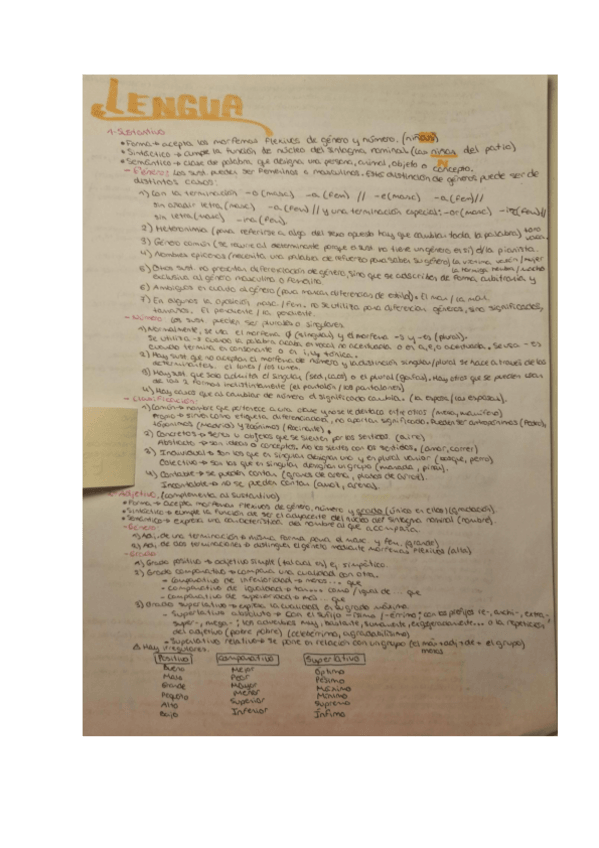 LENGUA
1. Sustantivo
• Forma → acepta los morfemas flexivos de género y número. (niñas)
• Sintáctico → cumple la función de núcleo del sintagma nominal. (Las niñas del patio)
N
• Semántico → clase de palabra que designa una persona, animal, objeto o concepto.
- Género: Los sust. pueden ser femeninos o masculinos. Esta distinción de géneros puede ser de
distintos casos:
1) Con la terminación -o (masc) -a (fem) // -e (masc) -a (fem) //
sin añadir letra (masc) -a (fem) // y una terminación especial: -or (masc) (fem) //
sin letra (masc) -ina (fem).
2) Heteronimia (para referirse a algo del sexo opuesto hay que cambiar toda la palabra) toro
vaca.
3) Género común (se recurre al determinante porque el sust. no tiene un género en sí) el/la pianista.
4) Nombres epicenos (necesita una palabra de refuerzo para saber su género) la víctima varón/mujer
la tortuga hembra/macho
5) Otros sust. no presentan diferenciación de género, sino que se adscriben de forma arbitraria y
exclusiva al género masculino o femenino.
6) Ambiguos en cuanto al género (para marcar diferencias de estilo). El mar / la mar.
7) En algunos la oposición masc./fem. no se utiliza para diferenciar géneros, sino significados,
tamaños. El pendiente / la pendiente.
- Número: Los sust. pueden ser plurales o singulares.
1) Normalmente, se usa el morfema Ø (singular) y el morfema -s y -es (plural).
Se utiliza -s cuando la palabra acaba en vocal no acentuada o en a, e, o acentuada. Se usa -es
cuando termina en consonante o en i, u tónica.
2) Hay sust. que no aceptan el morfema de número y la distinción singular/plural se hace a través de los
determinantes. el lunes / los lunes.
3) Hay sust. que solo admiten el singular (sed, caos) o el plural (gafas). Hay otros que se pueden usar
de las 2 formas indistintamente (el pantalón / los pantalones)
4) Hay casos que al cambiar de número el significado cambia. (la esposa / las esposas).
- Clasificación:
1) Común → nombre que pertenece a una clase y no se le destaca entre otros (mesa, maquillero)
Propio → sirve como etiqueta diferenciadora, no aportan significado. Pueden ser antropónimos (Pedro),
topónimos (Madrid) y zoónimos (Rocinante).
2) Concretos → seres u objetos que se sienten por los sentidos. (aire)
Abstracto → son ideas o conceptos. No los sientes con los sentidos. (amor, correr)
3) Individual → son los que en singular designan uno y en plural varios (bosque, perro)
Colectivo → son los que en singular designan un grupo (manada, pinar).
4) Contable → se pueden contar (granos de arena, platos de arroz).
Incontable → no se pueden contar (amor, arena).
2. Adjetivo. (complementa al sustantivo)
• Forma → acepta morfemas flexivos de género, número y grado (único en ellos) (gradación).
• Sintáctico → cumple la función de ser el adyacente del núcleo del sintagma nominal (nombre).
• Semántico → expresa una característica del nombre al que acompaña.
- Género
1) Adj. de una terminación → misma forma para el masc. y fem. (grande)
2) Adj. de dos terminaciones → distinguen el género mediante morfemas flexivos (alta)
- Grado
1) Grado positivo → adjetivo simple (tal cual es) ej. simpático.
2) Grado comparativo → compara una cualidad con otra.
- Comparativo de inferioridad → menos... que
- Comparativo de igualdad → tan... como / igual de... que
- Comparativo de superioridad → más... que
3) Grado superlativo → expresa la cualidad en su grado máximo.
- Superlativo absoluto → con el sufijo -ísimo / -érrimo; con los prefijos re-, archi-, extra-,
super-, mega-; los adverbios muy, bastante, sumamente, exageradamente... o la repetición
del adjetivo (pobre pobre) (celebérrimo, agradabilísimo)
- Superlativo relativo → se pone en relación con un grupo (el más + adj + de + el grupo)
menos
⚠ Hay irregulares.
Positivo Comparativo Superlativo
Bueno Mejor Óptimo
Malo Peor Pésimo
Grande Mayor Máximo
Pequeño Menor Mínimo
Alto Superior Supremo
Bajo Inferior Ínfimo